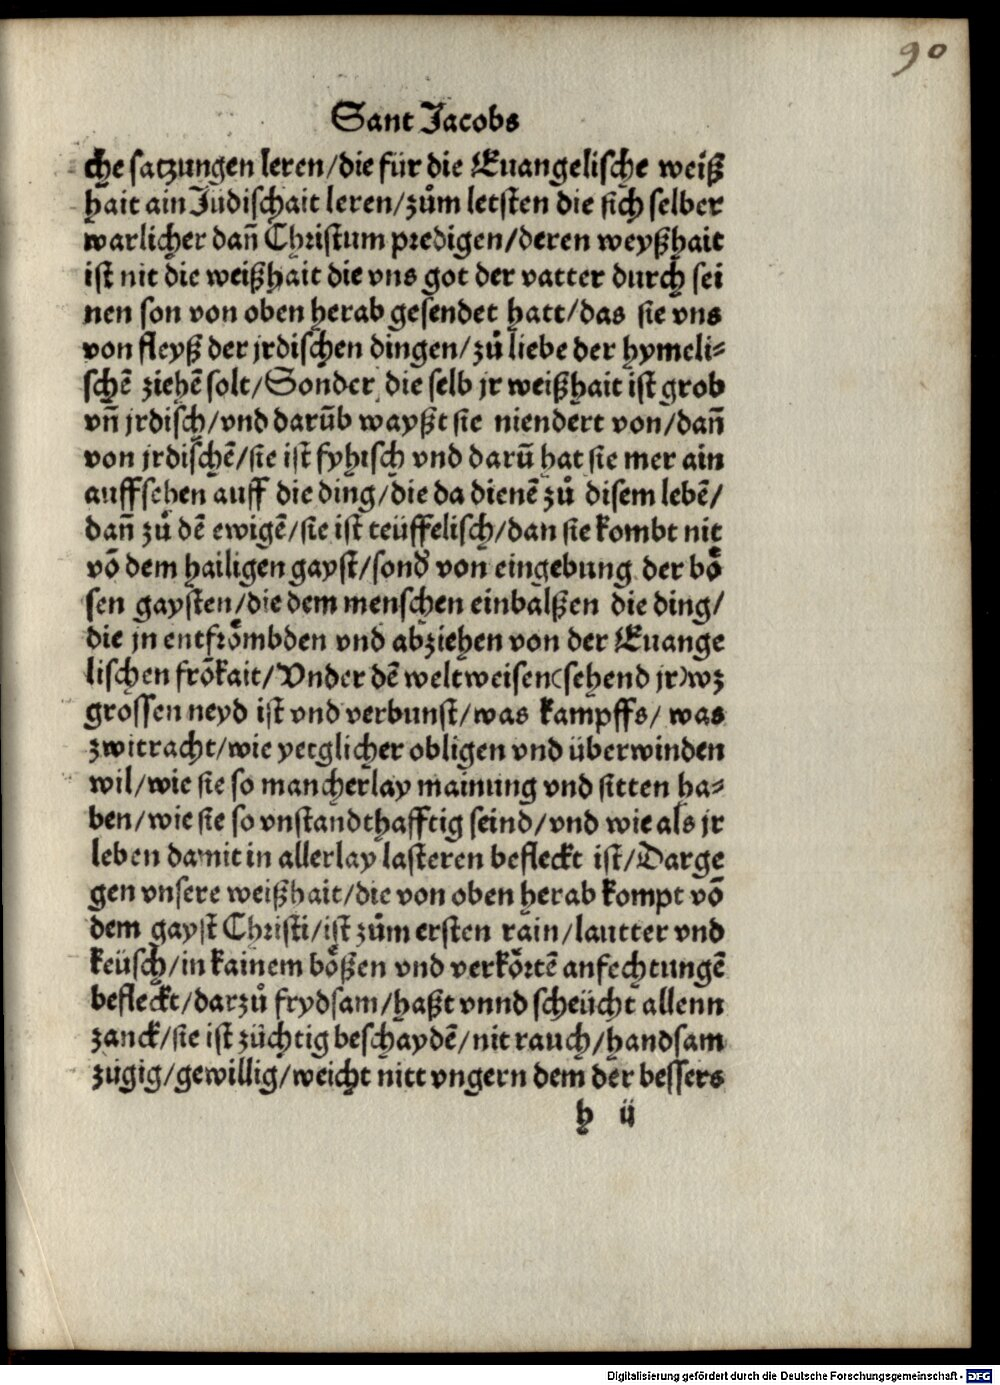 90
Sant Jacobs
che satzungen leren/die für die Euangelische weiß
hait ain Judischait leren/zům letsten die sich selber
warlicher dañ Christum predigen/deren weyßhait
ist nit die weißhait die vns got der vatter durch sei
nen son von oben herab gesendet hatt/das sie vns
von fleyß der jrdischen dingen/zů liebe der hymeli⸗
schẽ ziehẽ solt/Sonder die selb jr weißhait ist grob
vñ jrdisch/vnd darũb wayßt sie niendert von/dañ
von jrdischẽ/sie ist fyhisch vnd darũ hat sie mer ain
auffsehen auff die ding/die da dienẽ zů disem lebẽ/
dañ zů dẽ ewigẽ/sie ist teüffelisch/dan sie kombt nit
võ dem hailigen gayst/sond' von eingebung der boͤ
sen gaysten/die dem menschen einbalßen die ding/
die jn entfroͤmbden vnd abziehen von der Euange
lischen frõkait/Vnder dẽ weltweisen(sehend jr)wz
grossen neyd ist vnd verbunst/was kampffs/ was
zwitracht/wie yetglicher obligen vnd überwinden
wil/wie sie so mancherlay mainung vnd sitten ha⸗
ben/wie sie so vnstandthafftig seind/vnd wie als jr
leben damit in allerlay lasteren befleckt ist/Darge
gen vnsere weißhait/die von oben herab kompt võ
dem gayst Christi/ist zům ersten rain/lautter vnd
keüsch/in kainem boͤßen vnd verkoͤrtẽ anfechtungẽ
befleckt/darzů frydsam/haßt vnnd scheücht allenn
zanck/sie ist züchtig beschaydẽ/nit rauch/handsam
zügig/gewillig/weicht nitt vngern dem der bessers
h ij
Digitalisierung gefördert durch die Deutsche Forschungsgemeinschaft - DFG